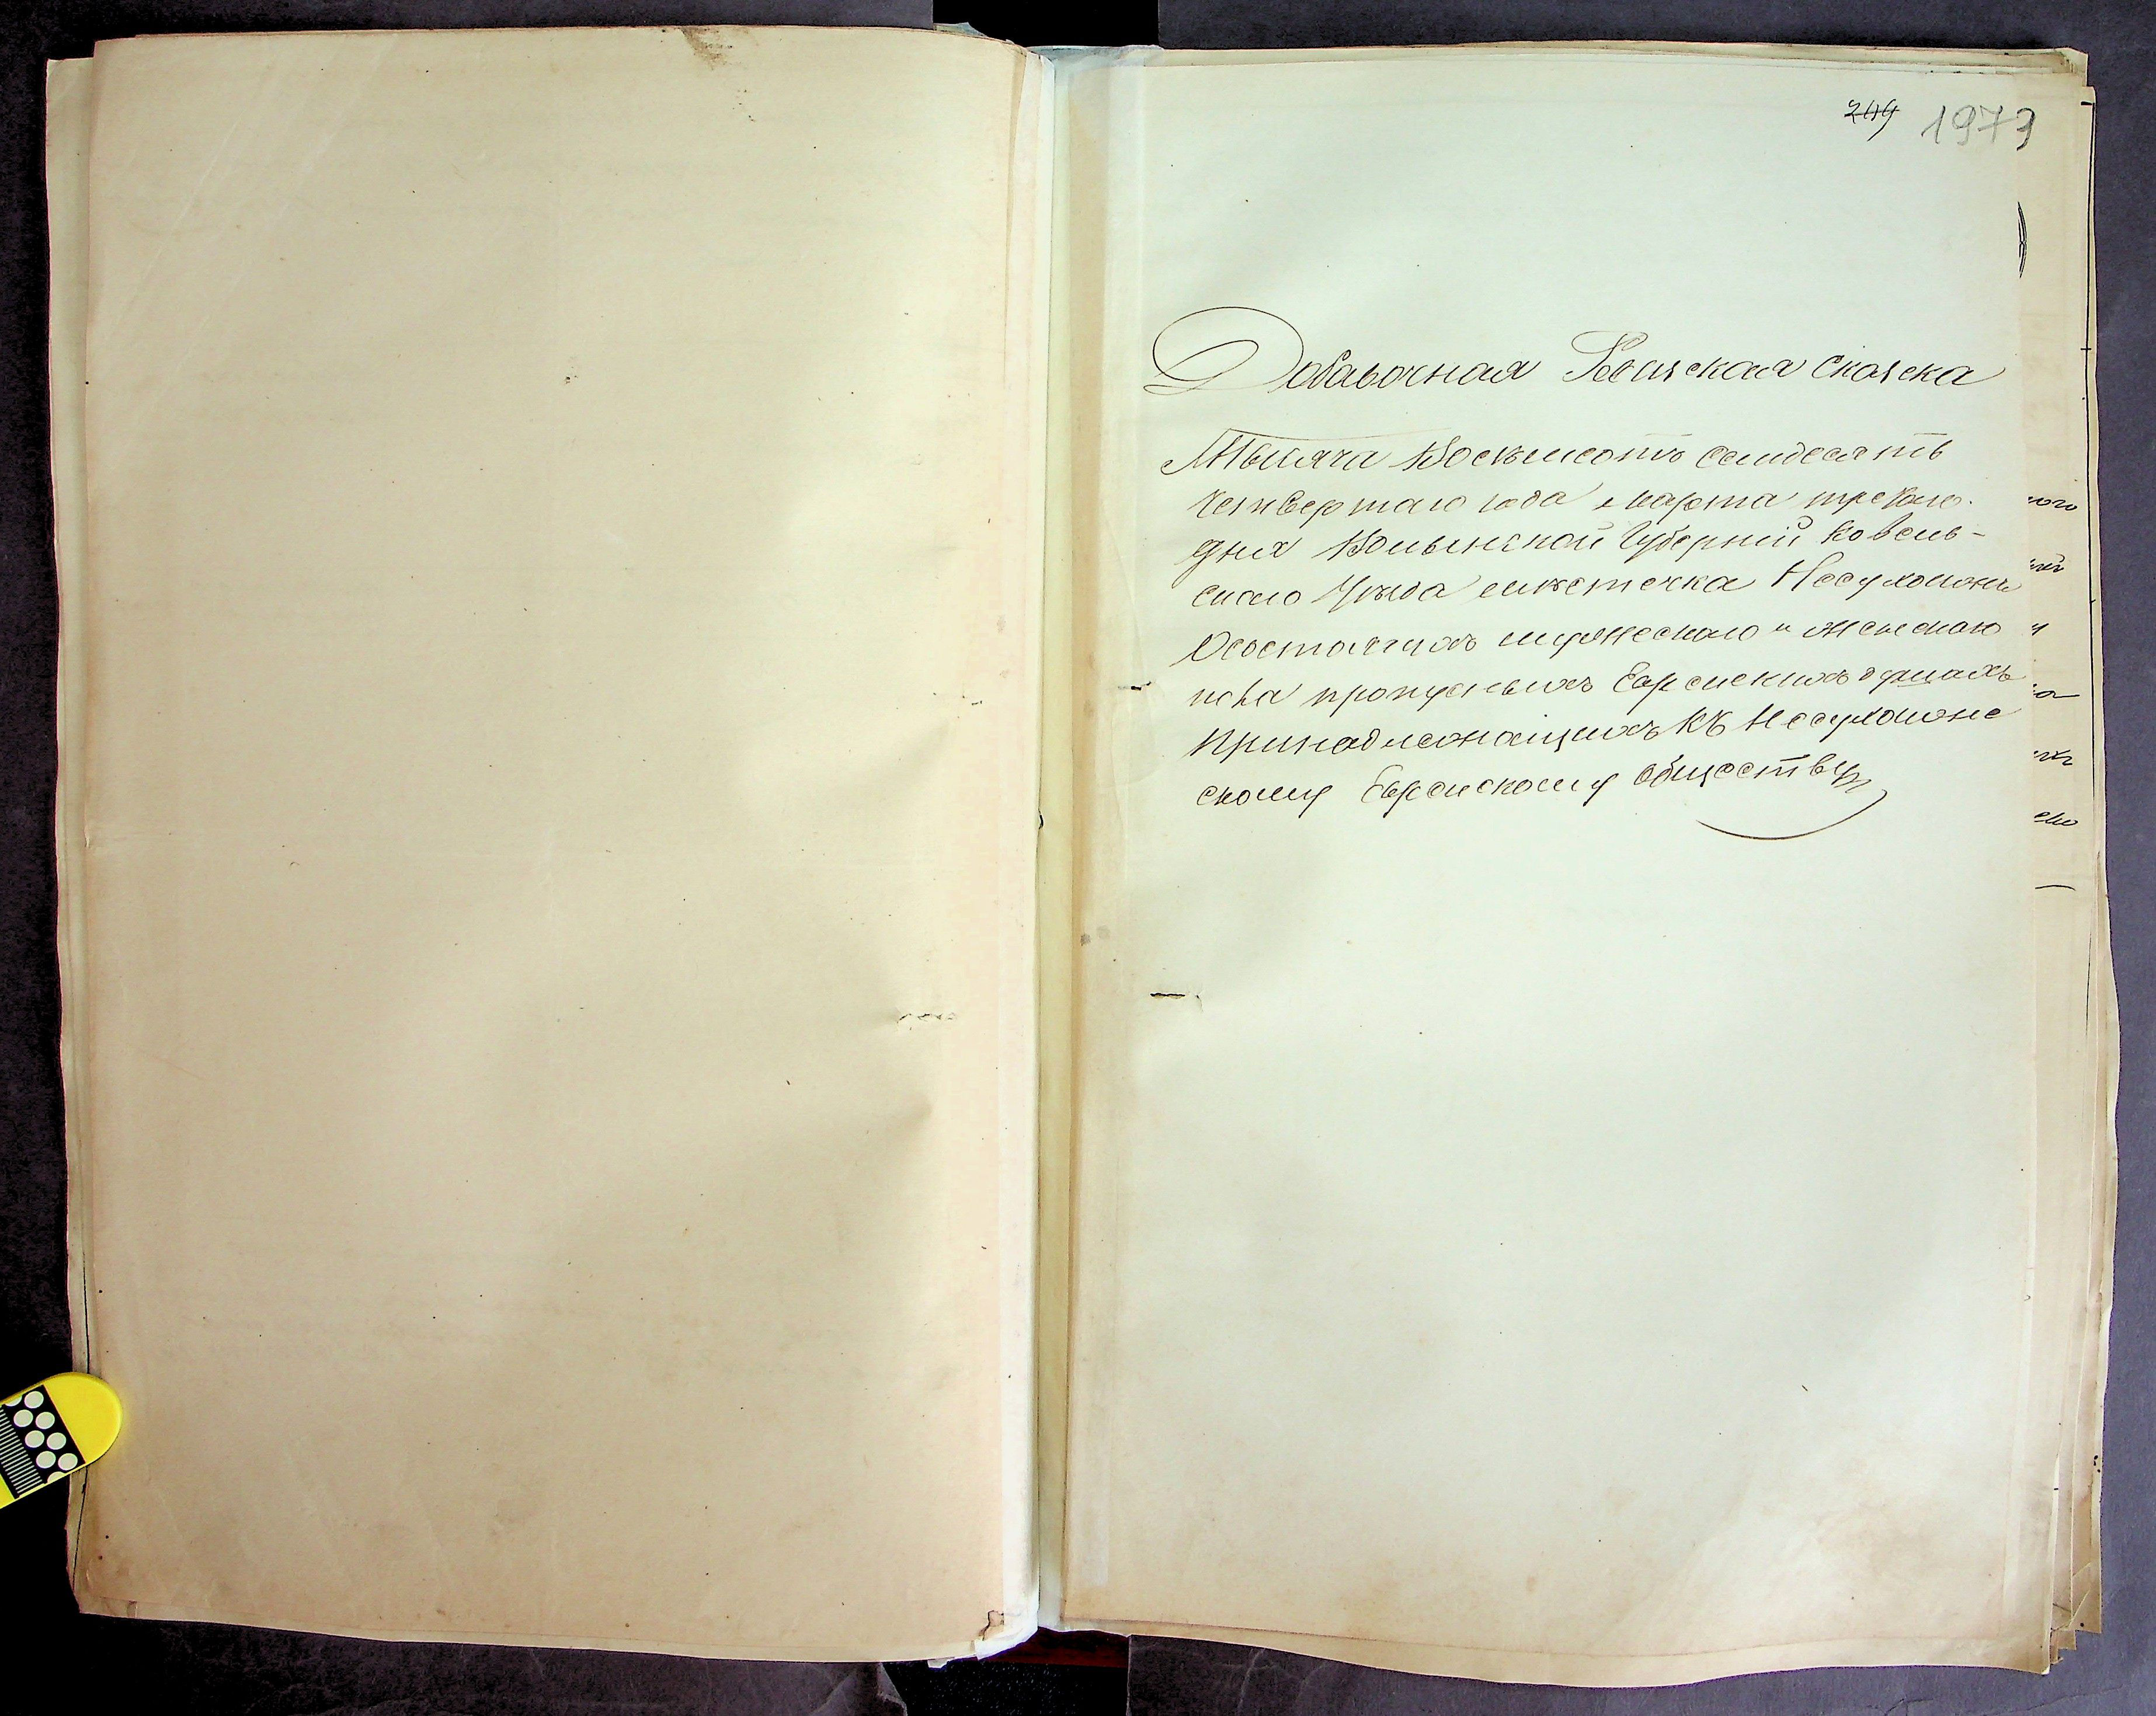 249 1973
Добавочная Ревизская сказка
Тысяча Восемьсотъ семдесятъ
четвертаго года марта третьяго
дня Волынской Губерніи Ковель-
скаго Уѣзда мѣстечка Несухоижъ
О состоящихъ мужескаго и женскаго
пола пропусныхъ Еврейскихъ душахъ
принадлежащихъ къ Несухоиже
скому Еврейскому обществу